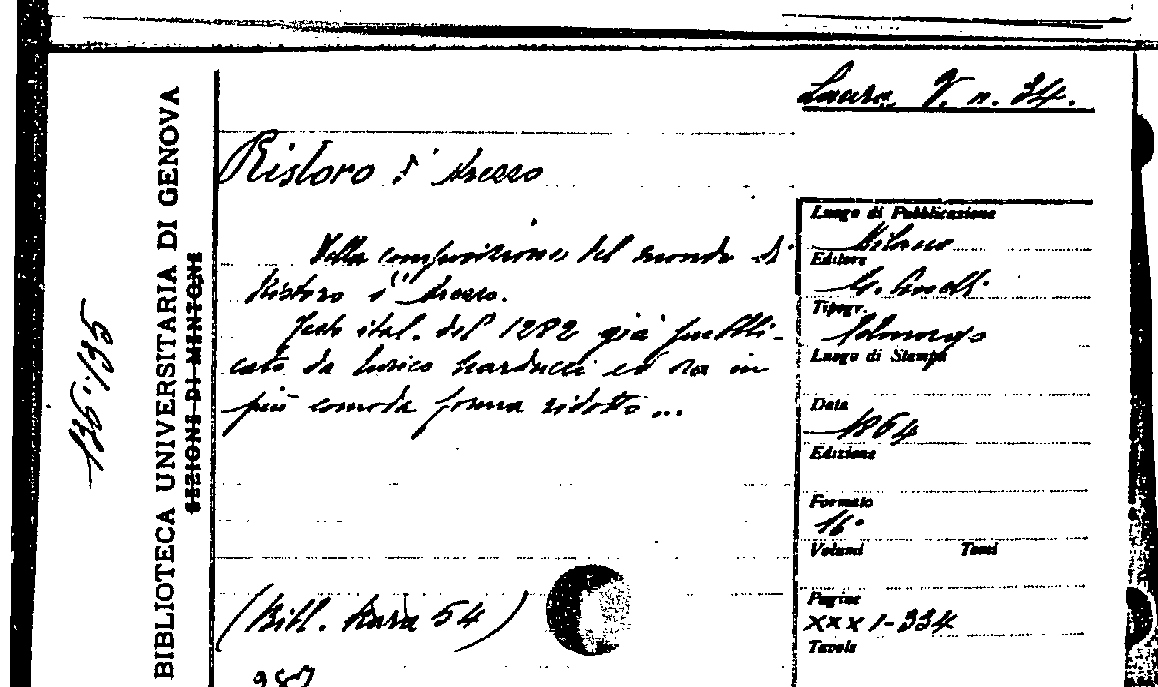 Laura V. n. 34.
Ristoro d' Arezzo
Della composizione del mondo di
Ristoro d' Arezzo.
Testo ital. del 1282 già pubbli-
cato da Enrico Narducci ed ora in
più comoda forma ridotto...
(Bibl. Rara 54)
987
Luogo di Pubblicazione
Milano
Editore
G. Daelli
Tipogr.
Luogo di Stampa
Data
1864
Edizione
Formato
16°
Volumi Tomi
Pagine
XXXI-334
Tavole
BIBLIOTECA UNIVERSITARIA DI GENOVA
SEZIONE DI MENTONE